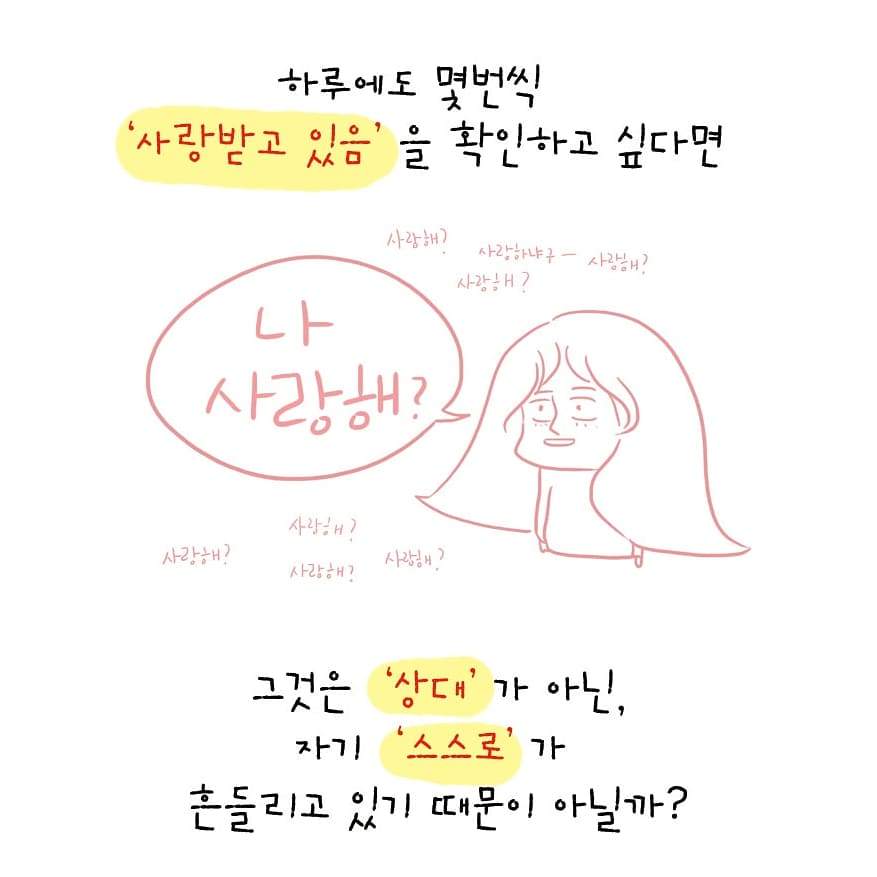 하루에도 몇번씩
'사랑받고 있음'을 확인하고 싶다면
사랑해?
사랑하냐구ー
사랑해?
사랑해?
나
사랑해?
사랑해?
사랑해?
사랑해?
사랑해?
그것은 '상대'가 아닌,
자기 '스스로'가
흔들리고 있기 때문이 아닐까?